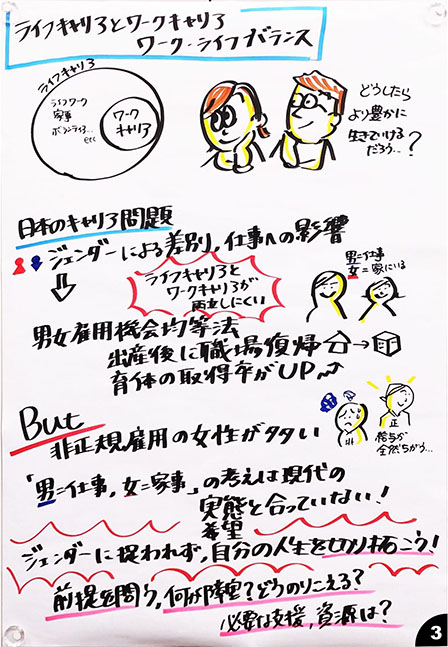 ライフキャリアとワークキャリア
ワーク・ライフバランス
ライフキャリア
ライフワーク
家事
ボランティア…
etc
ワーク
キャリア
どうしたら
より豊かに
生きていける
だろう…?
日本のキャリア問題
ジェンダーによる差別,仕事への影響
⇩
ライフキャリアと
ワークキャリアが
両立しにくい
男=仕事
女=家にいる
男女雇用機会均等法
出産後に職場復帰
育休の取得率がUP
But
非正規雇用の女性が多い
非
正
給与が
全然ちがう…
「男=仕事,女=家事」の考えは現代の
実態と合っていない!
希望
ジェンダーに捉われず,自分の人生を切り拓こう!
前提を問う,何が障害?どうのりこえる?
必要な支援,資源は?
3